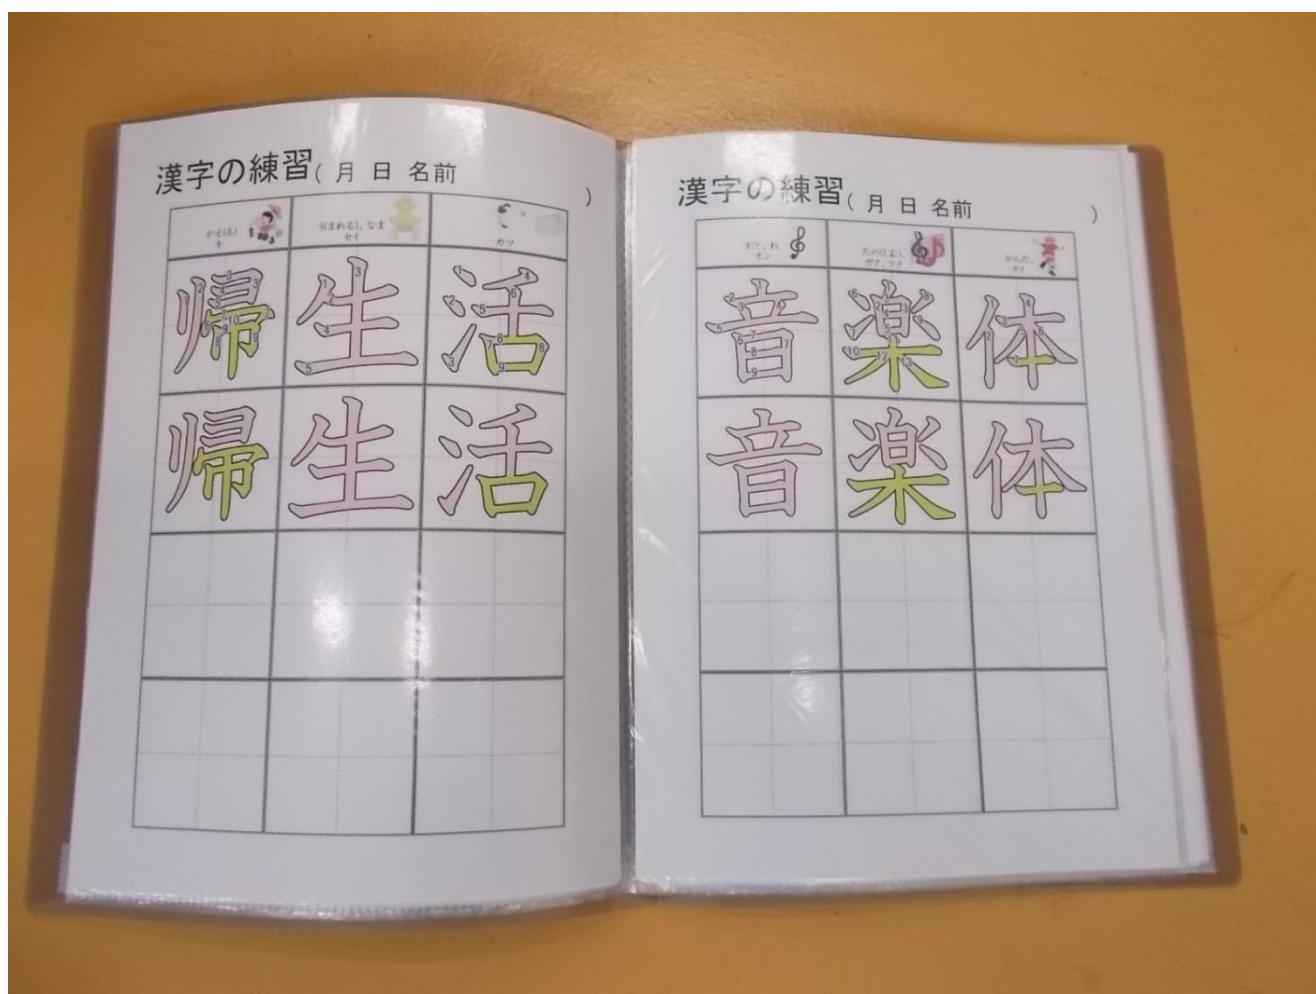 漢字の練習( 月 日 名前 )
かえ(る) う(まれる)、なま
キ セイ カツ
帰 生 活
帰 生 活
漢字の練習( 月 日 名前 )
おと、ね たの(しむ)、 からだ、
オン ガク、ラク タイ
音 楽 体
音 楽 体